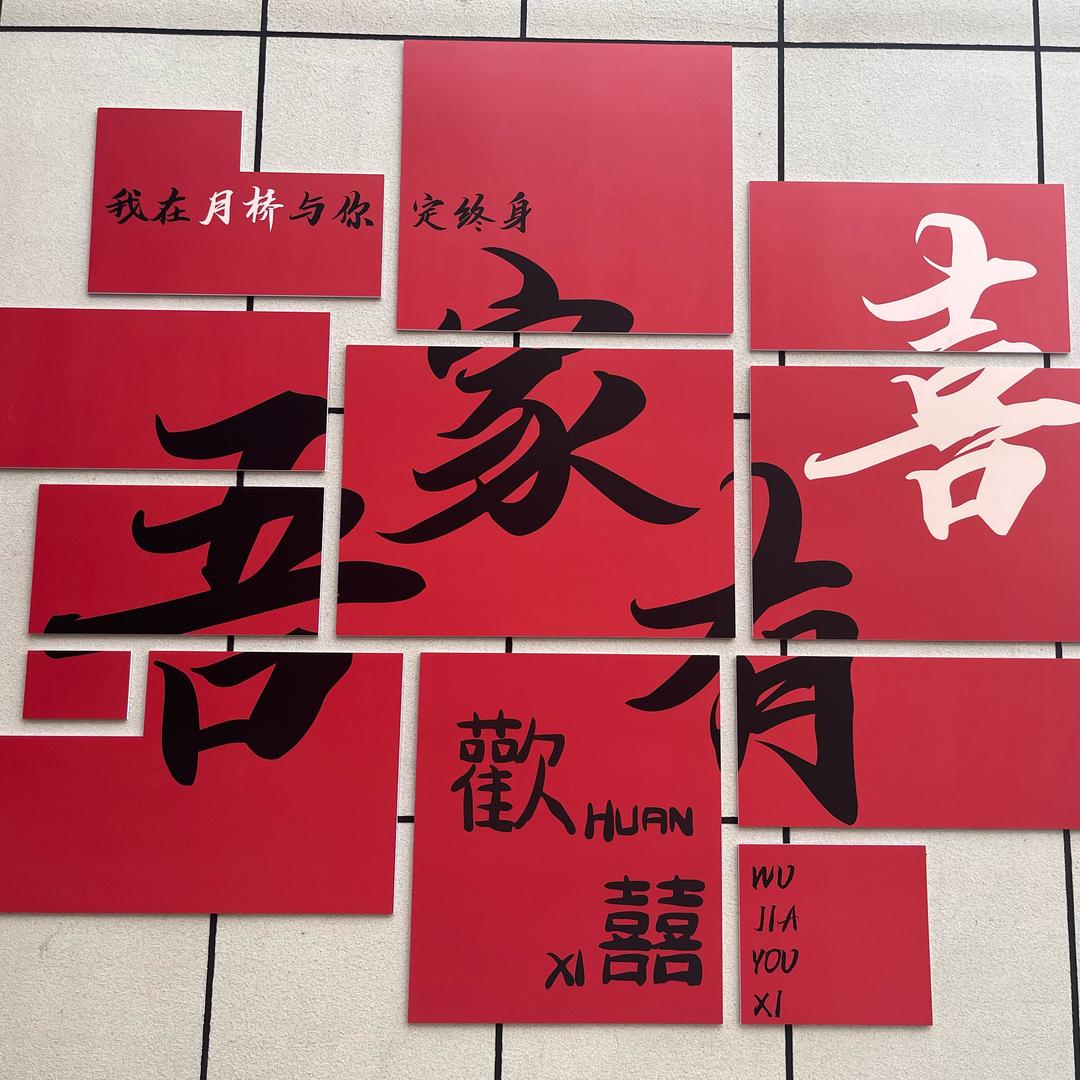 我在月桥与你定终身
吾家有喜
歡 HUAN
XI 囍
WU
JIA
YOU
XI